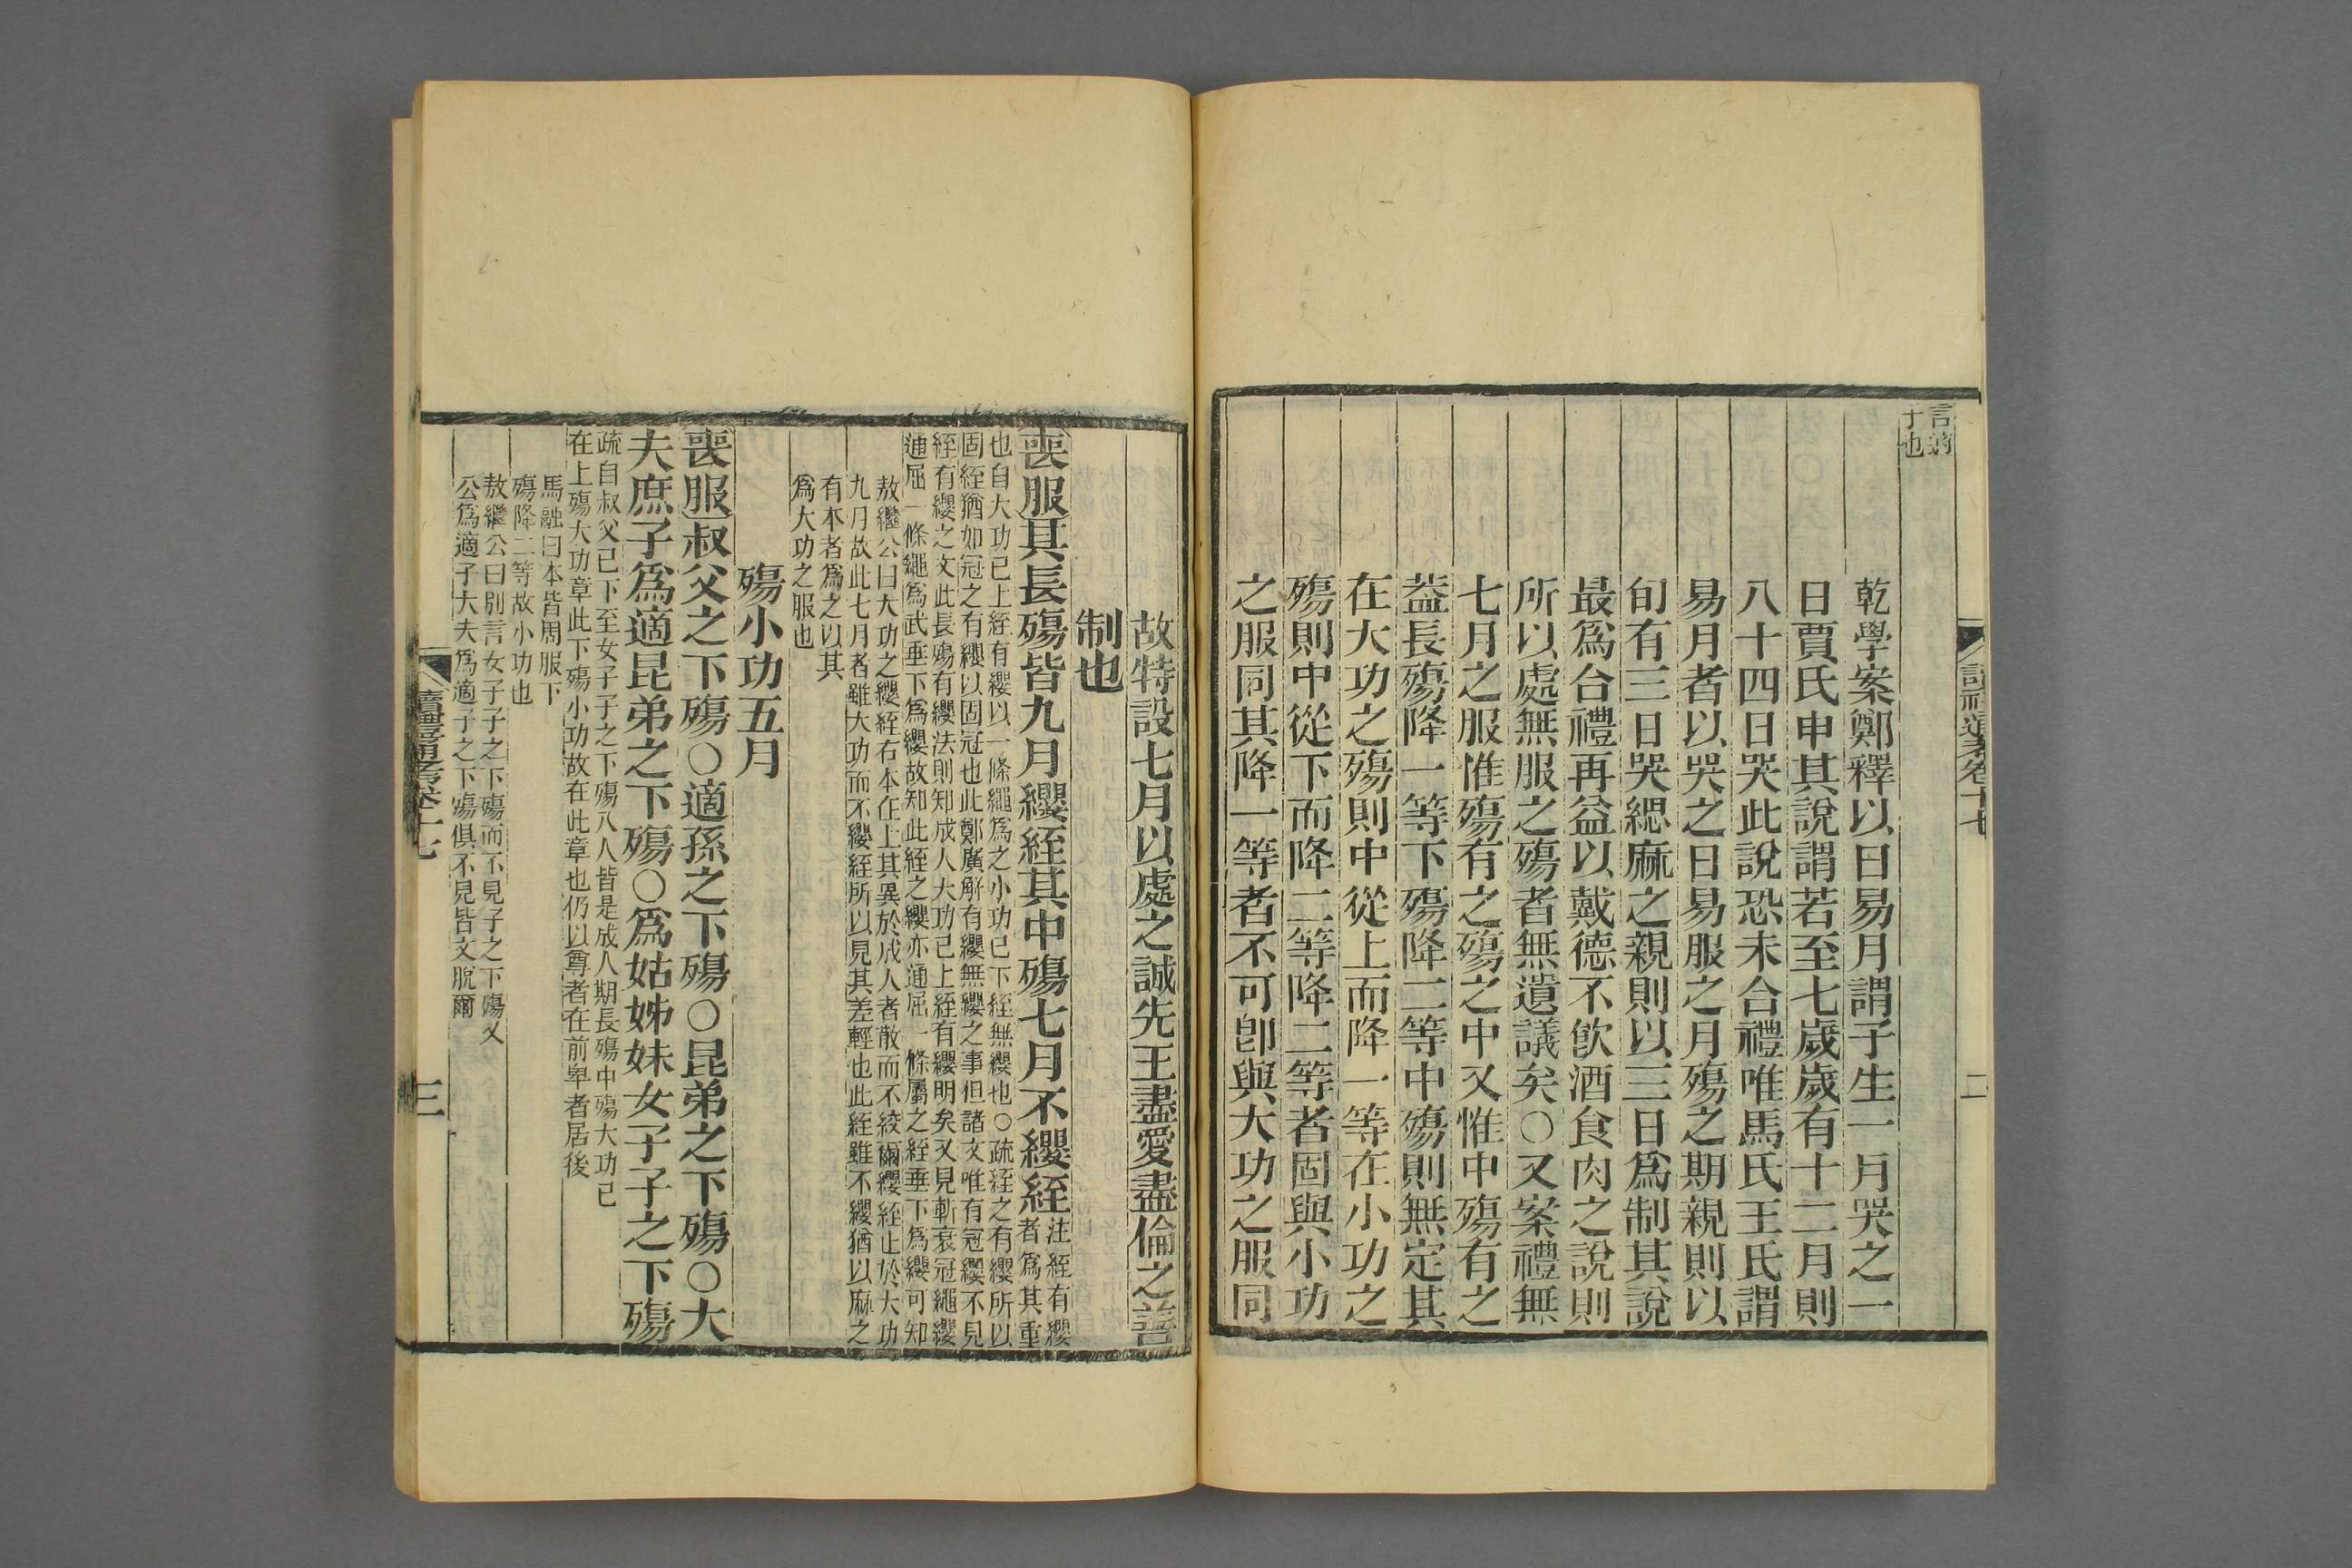 言適
子也
乾學案鄭釋以日易月謂子生一月哭之一
日賈氏申其說謂若至七歲歲有十二月則
八十四日哭此說恐未合禮唯馬氏王氏謂
易月者以哭之日易服之月殤之期親則以
旬有三日哭緦麻之親則以三日為制其說
最爲合禮再益以戴德不飮酒食肉之說則
所以處無服之殤者無遺議矣○又案禮無
七月之服惟殤有之殤之中又惟中殤有之
葢長殤降一等下殤降二等中殤則無定其
在大功之殤則中從上而降一等在小功之
殤則中從下而降二等降二等者固與小功
之服同其降一等者不可卽與大功之服同
讀禮通考卷十七
二
故特設七月以處之誠先王盡愛盡倫之善
制也
喪服其長殤皆九月纓絰其中殤七月不纓絰
注絰有纓
者為其重
也自大功已上絰有纓以一條繩爲之小功已下絰無纓也○疏絰之有纓所以
固絰猶如冠之有纓以固冠也此鄭廣解有纓無纓之事但諸文唯有冠纓不見
絰有纓之文此長殤有纓法則知成人大功已上絰有纓明矣又見斬衰冠繩纓
通屈一條繩爲武垂下爲纓故知此絰之纓亦通屈一條屬之絰垂下爲纓可知
敖繼公曰大功之纓絰右本在上其異於成人者散而不絞爾纓絰止於大功
九月故此七月者雖大功而不纓絰所以見其差輕也此絰雖不纓猶以麻之
有本者爲之以其
爲大功之服也
殤小功五月
喪服叔父之下殤○適孫之下殤○昆弟之下殤○大
夫庶子爲適昆弟之下殤○爲姑姊妹女子子之下殤
疏自叔父已下至女子子之下殤八人皆是成人期長殤中殤大功已
在上殤大功章此下殤小功故在此章也仍以尊者在前卑者居後
馬融曰本皆周服下
殤降二等故小功也
敖繼公曰別言女子子之下殤而不見子之下殤又
公爲適子大夫爲適子之下殤俱不見皆文脫爾
讀禮通考卷十七
三